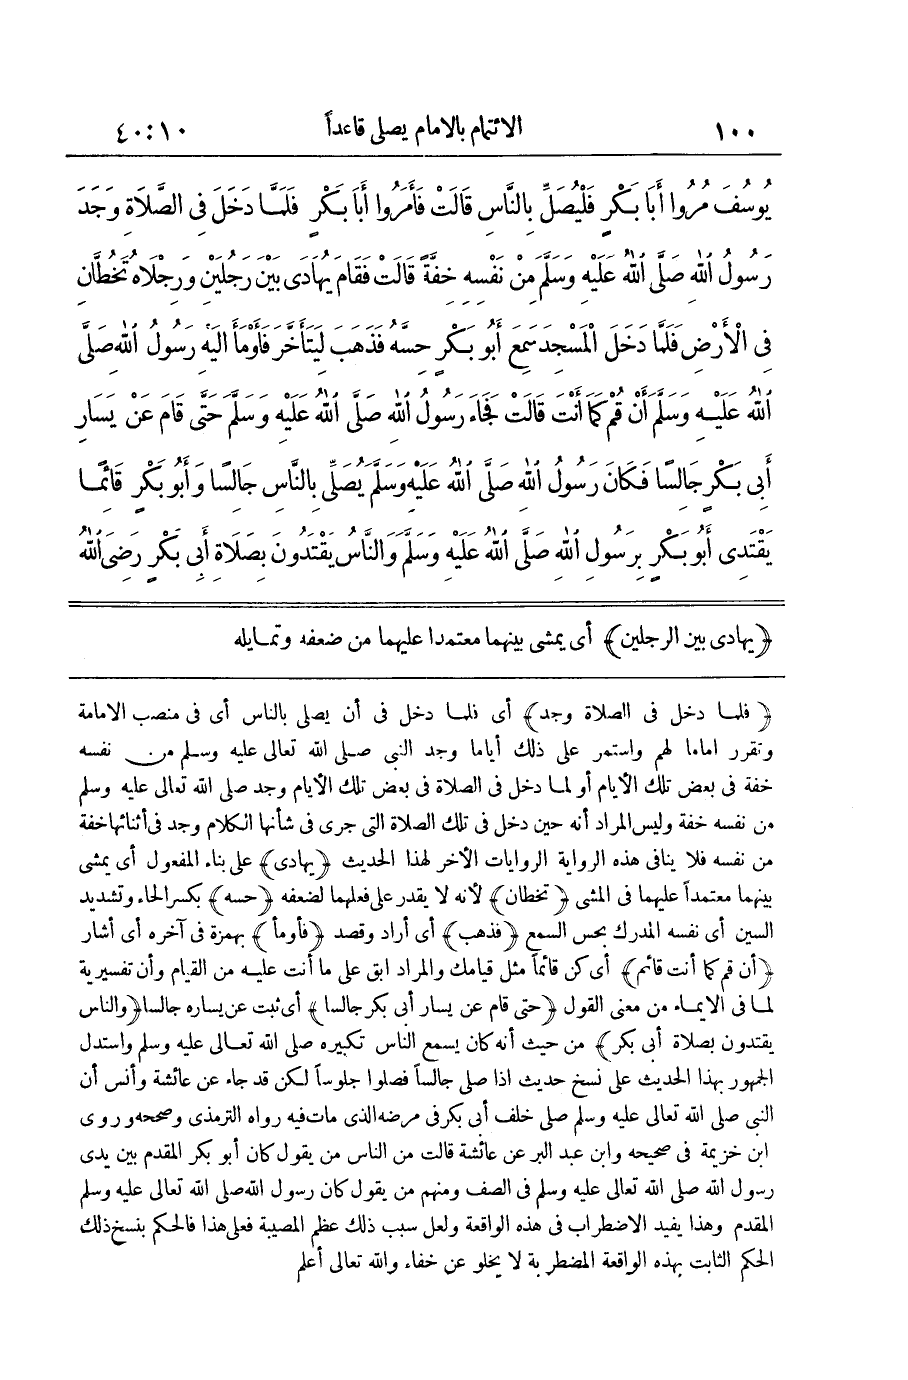 ١٠٠ الائتمام بالامام يصلى قاعداً ٤٠:١٠
يُوسُفَ مُرُوا أَبَا بَكْرٍ فَلْيُصَلِّ بِالنَّاسِ قَالَتْ فَأَمَرُوا أَبَا بَكْرٍ فَلَمَّا دَخَلَ فِى الصَّلَاةِ وَجَدَ
رَسُولُ اللّٰهِ صَلَّى اللّٰهُ عَلَيْهِ وَسَلَّمَ مِنْ نَفْسِهِ خِفَّةً قَالَتْ فَقَامَ يُهَادَى بَيْنَ رَجُلَيْنِ وَرِجْلَاهُ تَخُطَّانِ
فِى الْأَرْضِ فَلَمَّا دَخَلَ الْمَسْجِدَ سَمِعَ أَبُو بَكْرٍ حِسَّهُ فَذَهَبَ لِيَتَأَخَّرَ فَأَوْمَأَ الَيْهِ رَسُولُ اللّٰهِ صَلَّى
اللّٰهُ عَلَيْهِ وَسَلَّمَ أَنْ قُمْ كَمَا أَنْتَ قَالَتْ فَجَاءَ رَسُولُ اللّٰهِ صَلَّى اللّٰهُ عَلَيْهِ وَسَلَّمَ حَتَّى قَامَ عَنْ يَسَارِ
أَبِى بَكْرٍ جَالِسًا فَكَانَ رَسُولُ اللّٰهِ صَلَّى اللّٰهُ عَلَيْهِ وَسَلَّمَ يُصَلِّى بِالنَّاسِ جَالِسًا وَأَبُو بَكْرٍ قَائِمًا
يَقْتَدِى أَبُو بَكْرٍ بِرَسُولِ اللّٰهِ صَلَّى اللّٰهُ عَلَيْهِ وَسَلَّمَ وَالنَّاسُ يَقْتَدُونَ بِصَلَاةِ أَبِى بَكْرٍ رَضِىَ اللّٰهُ
﴿يهادى بين الرجلين﴾ أى يمشى بينهما معتمدا عليهما من ضعفه وتمايله
﴿فلما دخل فى الصلاة وجد﴾ أى فلما دخل فى أن يصلى بالناس أى فى منصب الامامة
وتقرر اماما لهم واستمر على ذلك أياما وجد النبى صلى الله تعالى عليه وسلم من نفسه
خفة فى بعض تلك الأيام أو لما دخل فى الصلاة فى بعض تلك الأيام وجد صلى الله تعالى عليه وسلم
من نفسه خفة وليس المراد أنه حين دخل فى تلك الصلاة التى جرى فى شأنها الكلام وجد فى أثنائها خفة
من نفسه فلا ينافى هذه الرواية الروايات الأخر لهذا الحديث ﴿يهادى﴾ على بناء المفعول أى يمشى
بينهما معتمداً عليهما فى المشى ﴿تخطان﴾ لأنه لا يقدر على فعلهما لضعفه ﴿حسه﴾ بكسر الحاء وتشديد
السين أى نفسه المدرك بحس السمع ﴿فذهب﴾ أى أراد وقصد ﴿فأومأ﴾ بهمزة فى آخره أى أشار
﴿أن قم كما أنت قائم﴾ أى كن قائماً مثل قيامك والمراد ابق على ما أنت عليه من القيام وأن تفسيرية
لما فى الايماء من معنى القول ﴿حتى قام عن يسار أبى بكر جالسا﴾ أى ثبت عن يساره جالسا ﴿والناس
يقتدون بصلاة أبى بكر﴾ من حيث أنه كان يسمع الناس تكبيره صلى الله تعالى عليه وسلم واستدل
الجمهور بهذا الحديث على نسخ حديث اذا صلى جالساً فصلوا جلوساً لكن قد جاء عن عائشة وأنس أن
النبى صلى الله تعالى عليه وسلم صلى خلف أبى بكر فى مرضه الذى مات فيه رواه الترمذى وصححه وروى
ابن خزيمة فى صحيحه وابن عبد البر عن عائشة قالت من الناس من يقول كان أبو بكر المقدم بين يدى
رسول الله صلى الله تعالى عليه وسلم فى الصف ومنهم من يقول كان رسول الله صلى الله تعالى عليه وسلم
المقدم وهذا يفيد الاضطراب فى هذه الواقعة ولعل سبب ذلك عظم المصيبة فعلى هذا فالحكم بنسخ ذلك
الحكم الثابت بهذه الواقعة المضطربة لا يخلو عن خفاء والله تعالى أعلم